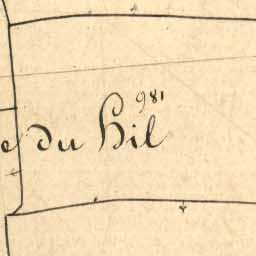 981
e du hil